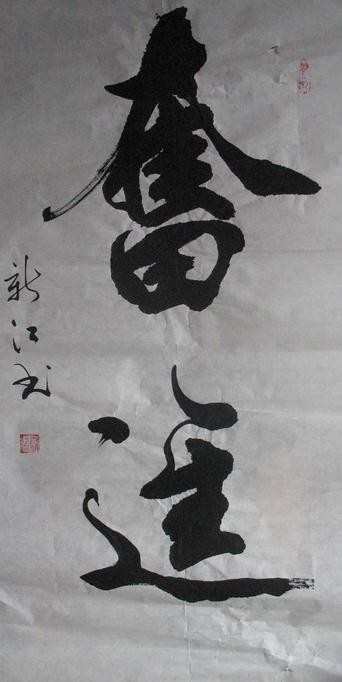 奮進
新江书